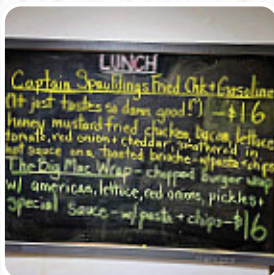 LUNCH
Captain Spauldings Fried Chk + Gasoline
(It just tastes so damn good!") - $16
honey mustard fried chicken, bacon, lettuce
tomato, red onion + cheddar, smothered in
hot sauce on a toasted brioche - w/pasta + chips
The Big Mac Wrap - chopped burger wrap
w/ american, lettuce, red onions, pickles +
special sauce - w/pasta + chips - $16